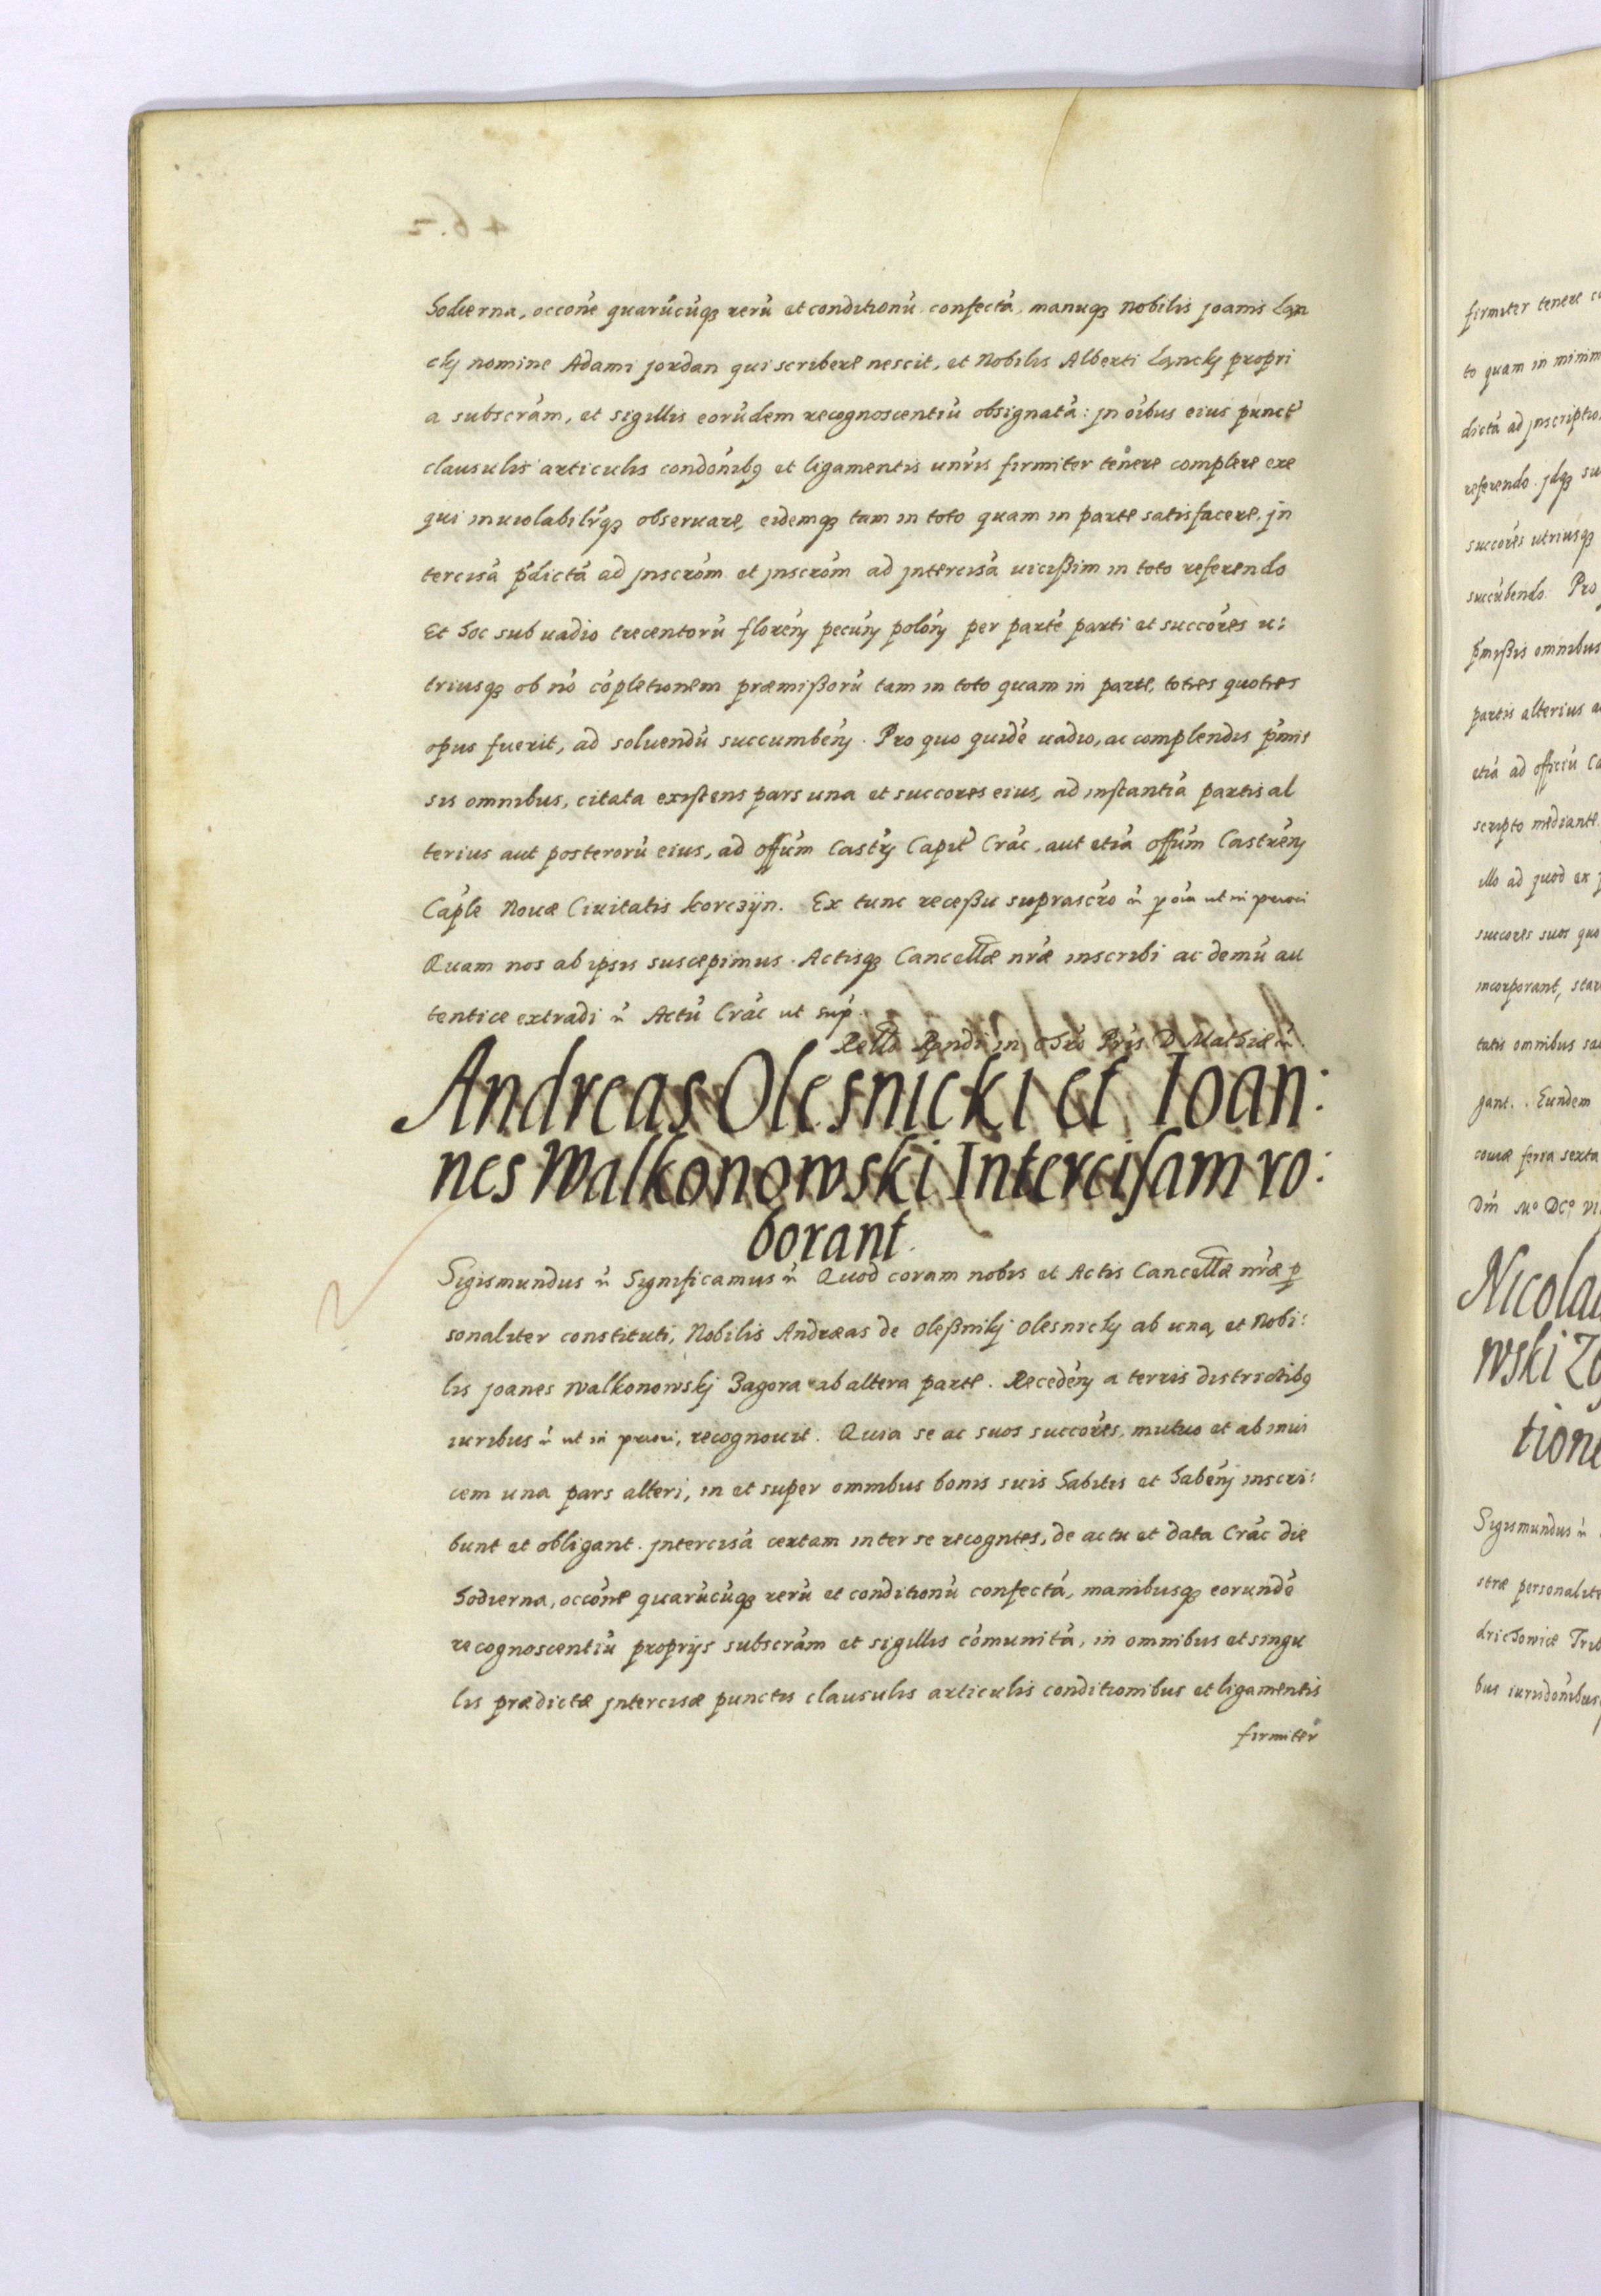 hodierna, occone quarucuq rerū et conditionū confectā, manuq Nobilis joanis Lqn
ckj nomine Adami jordan qui scribere nescit, et Nobilis Alberti Lqnckj propri
a subscram, et sigillis eorūdem recognoscentiū obsignatā: jn oibus eius punct
clausulis articulis condonibq et ligamentis unris firmiter tenere complere exe
qui inuiolabilrq obseruare, eidemq tam in toto quam in parte satisfacere, jn
tercisā pdictā ad jnscrom et jnscrom ad jntercisā uicißim in toto referendo
Et hoc sub uadio trecentorū floreny pecuny polony per partē parti et succores u:
triusq ob nō cōpletionem præmißorū tam in toto quam in parte, toties quoties
opus fuerit, ad soluendū succumbeny. Pro quo quidē uadio, ac complendis pmis
sis omnibus, citata existens pars una et succores eius, ad instantiā partis al
terius aut posterorū eius, ad offūm Castry Capit Crac, aut etiā offūm Castreny
Caple Nouæ Ciuitatis korczÿn. Ex tunc receßu suprascro ut in priori
Quam nos ab ipsis suscepimus. Actisq Cancellæ nræ inscribi ac demū au
tentice extradi Actū Crac ut sup.
Rello Rpndi in Chro Pris D Mathiæ
Andreas Olesnicki et Ioan:
nes Walkonowski Intercisam ro:
borant.
Sigismundus Significamus Quod coram nobis et Actis Cancellæ nræ p
sonaliter constituti, Nobilis Andreas de Oleßnikj Olesnickj ab una, et Nobi:
lis joanes Walkonowskj Zagora ab altera parte. Recedeny a terris districtibq
iuribus ut in priori, recognouit. Quia se ac suos succores, mutuo et ab inui
cem una pars alteri, in et super omnibus bonis suis habitis et habenj inscri:
bunt et obligant. jntercisā certam inter se recogntes, de actu et data Crac die
hodierna, occone quarūcūq rerū et conditionū confectā, manibusq eorundē
recognoscentiū proprijs subscram et sigillis cōmunitā, in omnibus et singu
lis prædictæ jntercisæ punctis clausulis articulis conditionibus et ligamentis
firmiter
firmiter tenere
to quam in minim
dictā ad jnscriptio
referendo. jdq su
succores utriusq
succūbendo. Pro
pmißis omnibus
partis alterius a
etiā ad officiū Ca
scripto mediante
illo ad quod ex
succores suos quo
incorporant, star
tatis omnibus sa
gant. Eundem
couiæ feria sexta
Dni Mo DCo VI
Nicola
wski
tione
Sigismundus
stræ personalite
drichowice Trib
bus iurisdonibus